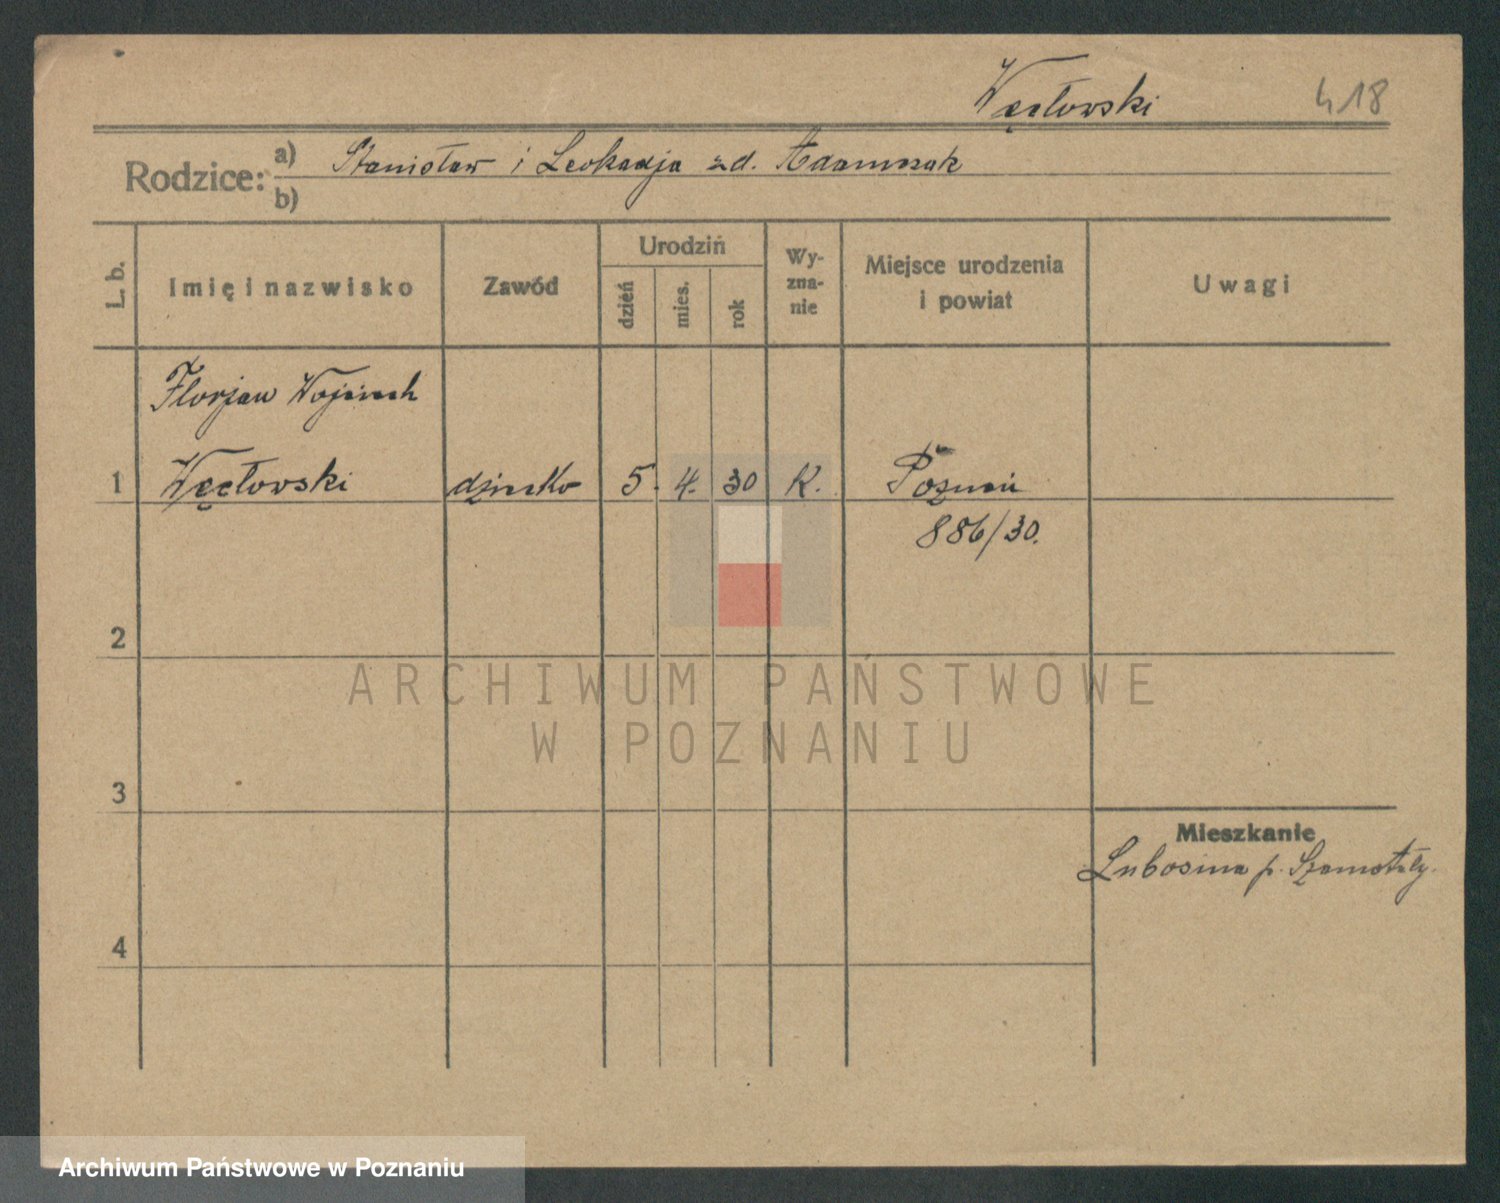 Węcłowski 418
Rodzice: a) Stanisław i Leokadja zd. Adamczak
b)
L. b. Imię i nazwisko Zawód Urodziń dzień mies. rok Wy-zna-nie Miejsce urodzenia i powiat Uwagi
Florjan Wojciech
1 Węcłowski dziecko 5. 4. 30 K. Poznań
886/30.
2
ARCHIWUM PAŃSTWOWE
W POZNANIU
3
Mieszkanie
Lubosina p. Szamotuły.
4
Archiwum Państwowe w Poznaniu